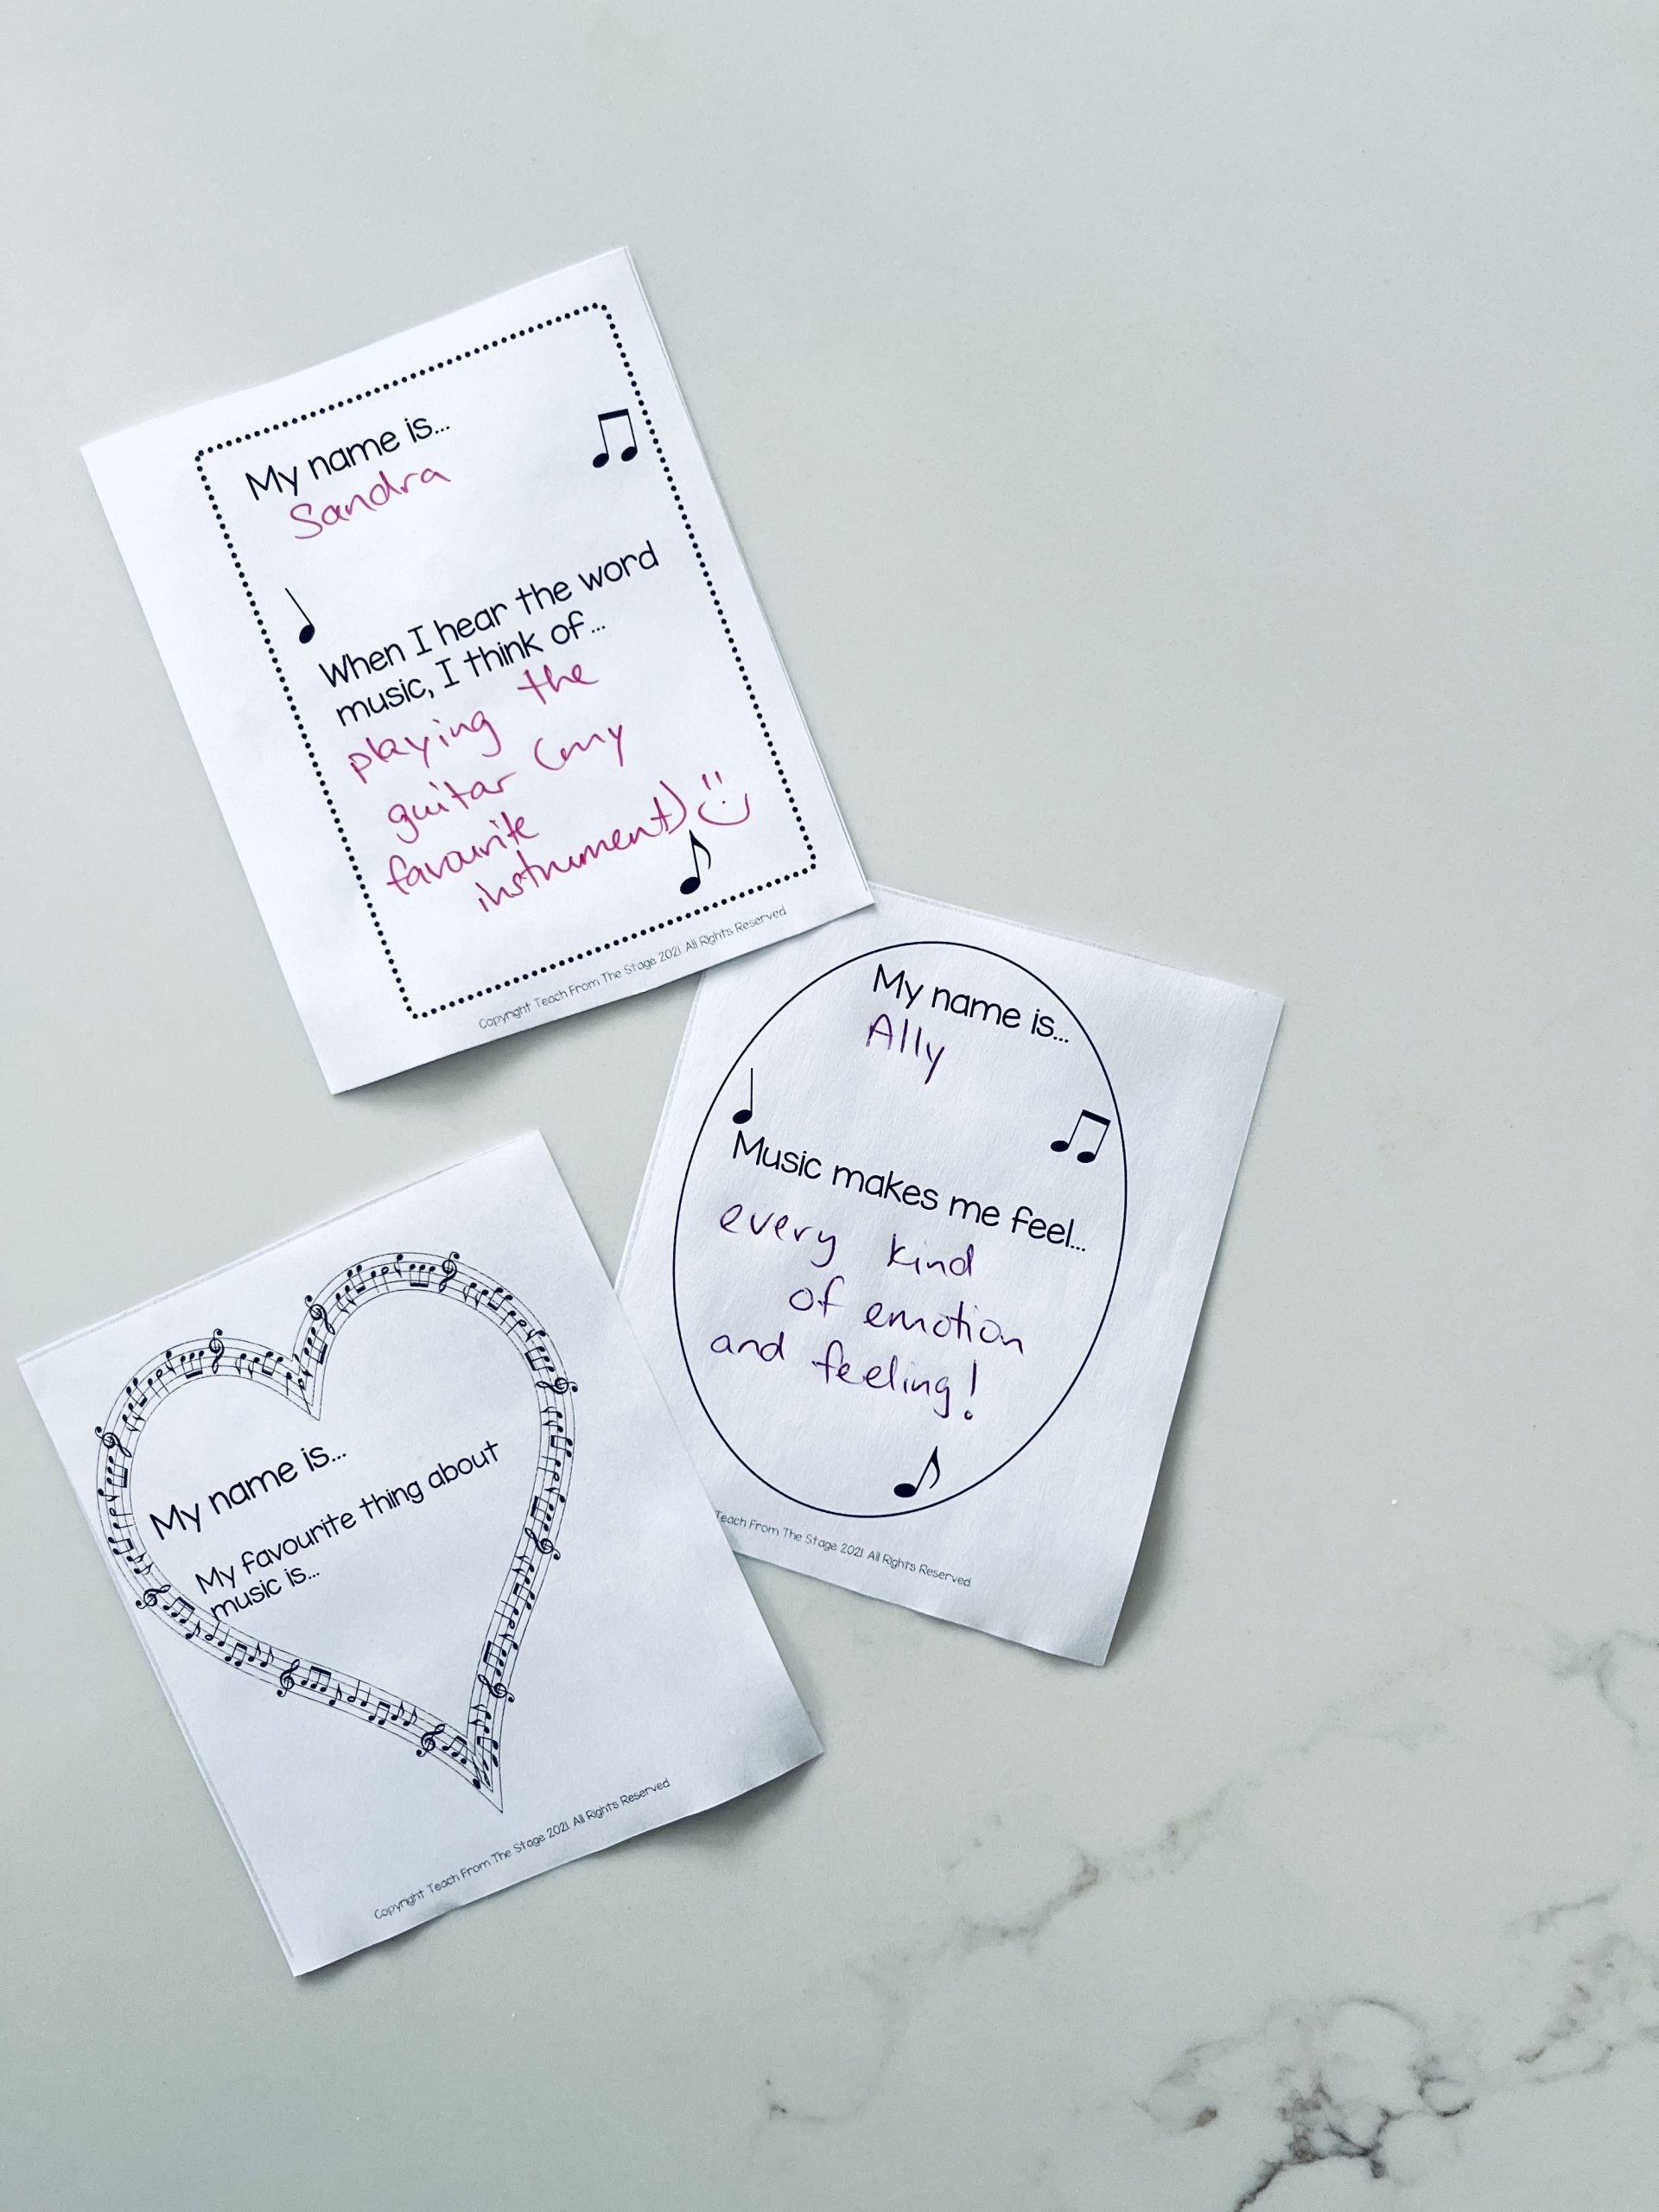 My name is...
Sandra
When I hear the word
music, I think of...
playing the
guitar (my
favourite
instrument)
Copyright Teach From The Stage 2021. All Rights Reserved
My name is...
Ally
Music makes me feel...
every kind
of emotion
and feeling!
Teach From The Stage 2021. All Rights Reserved
My name is...
My favourite thing about
music is...
Copyright Teach From The Stage 2021. All Rights Reserved